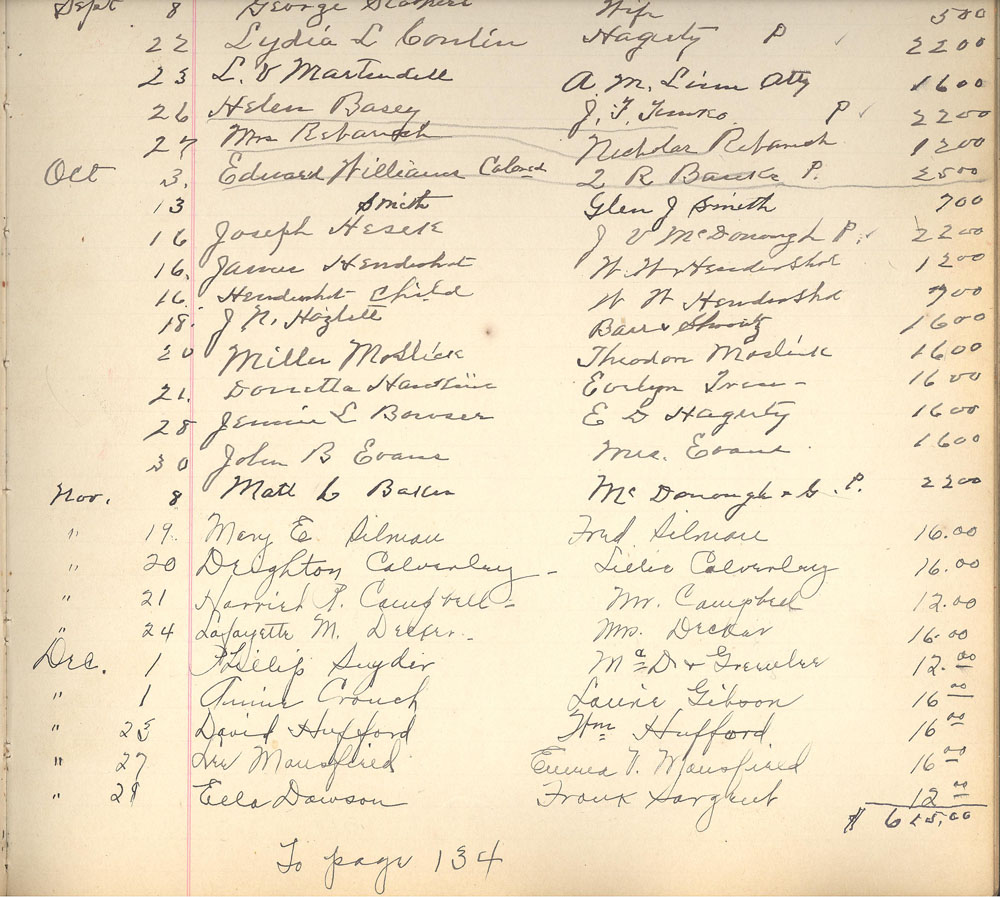 Sept 8 George Wife 500
22 Lydia L Conlin Hagerty P ✓ 2200
23 L. V Martindell A. M. Linn Atty 1600
26 Helen Basey J. F. P ✓ 2200
27 Mrs Rebanch Nicholas Rebanch 1200
Oct 3. Edward Williams Colored R Banks P. 2500
13 Smith Glen J Smith 700
16 Joseph J V McDonough P. ✓ 2200
16. James Hendershot W. W. Hendershot 1200
16. Hendershot Child W W Hendershot 700
18. J. N. Hazlett Barr & 1600
20 Miller Moslick Theodore Moslick 1600
21. Donetta Hawkins Evelyn 1600
28 Jennie L Bowser E D Hagerty 1600
30 John B Evans Mrs. Evans 1600
Nov. 8 Matt L Baker McDonough & G. P. 2200
" 19. Mary E. Silman Fred Silman 16.00
" 20 Deighton Calverley - Lillie Calverley 16.00
" 21 Harriet P. Campbell - Mr. Campbell 12.00
" 24 Lafayette M. Decker. - Mrs. Decker 16.00
Dec. 1 Philip Snyder McD & Greenlee 12.00
" 1 Annie Crouch Laurie Gibson 16 00
" 25 David Hufford Wm Hufford 16 00
" 27 Lew Mansfield Emma V. Mansfield 16 00
" 28 Ella Dawson Frank Sargent 12 00
$ 625.00
To page 134